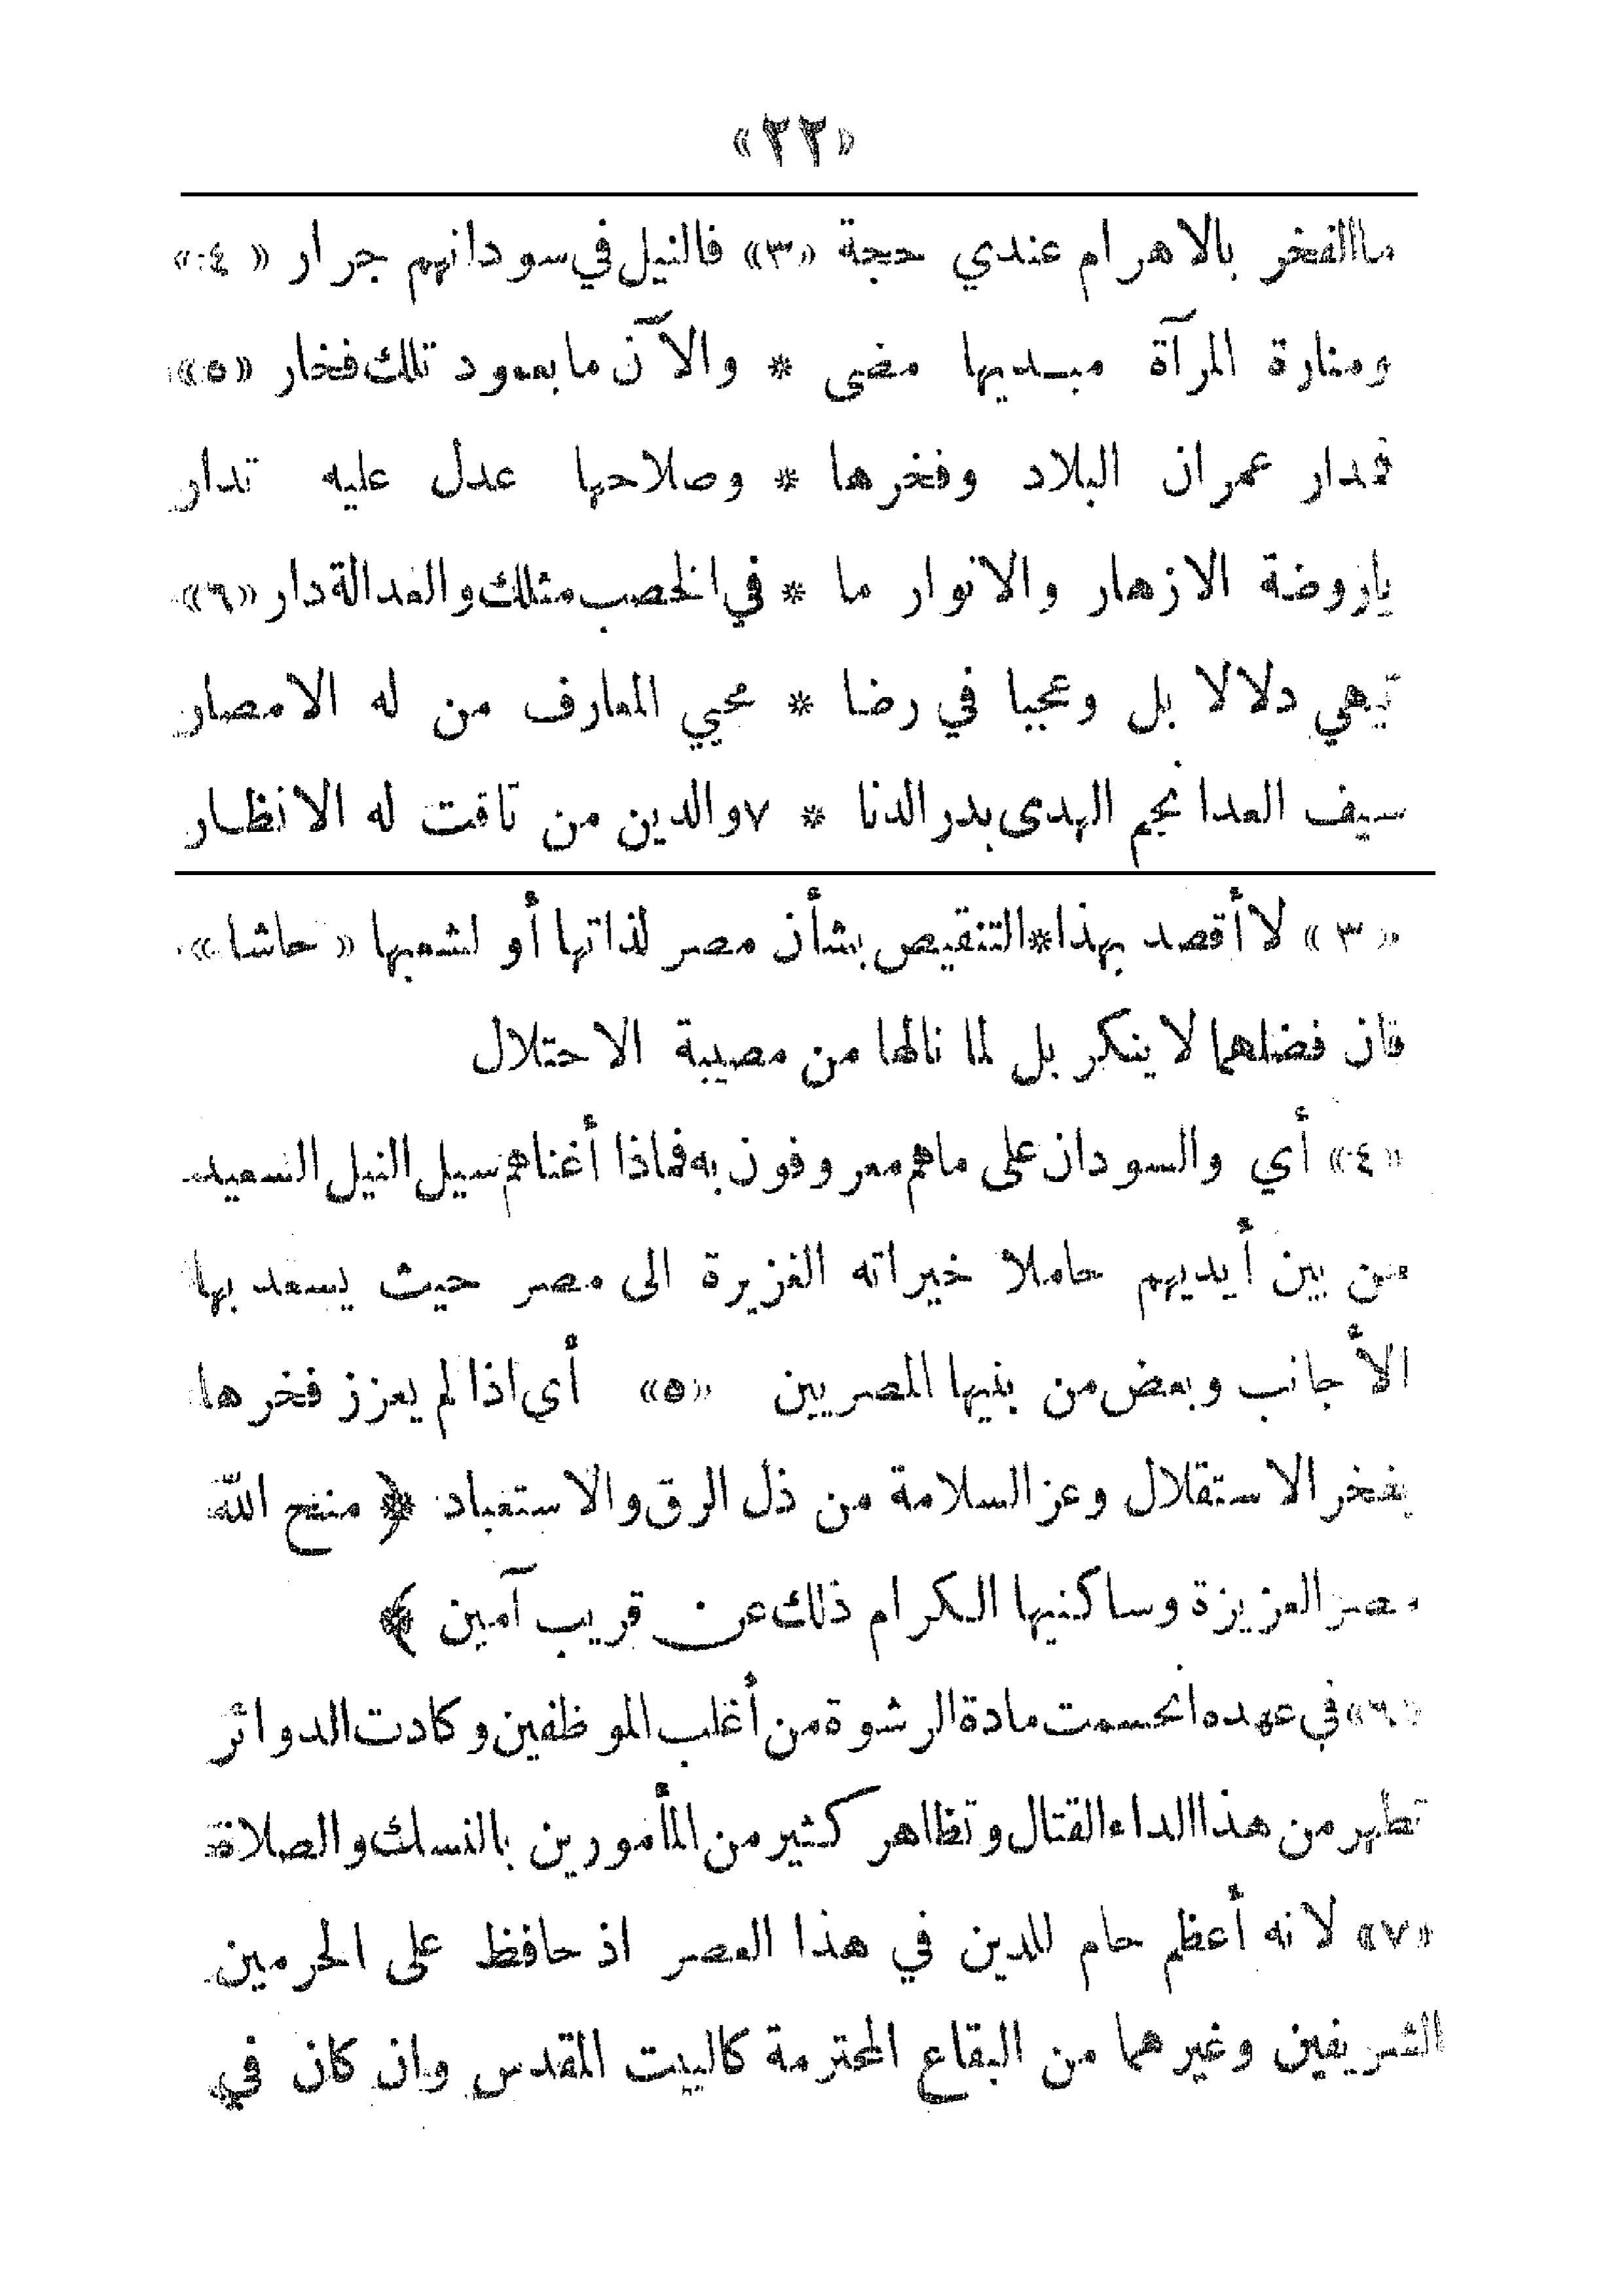 «٢٢»
ماالفخر بالاهرام عندي حجة «٣» فالنيل في سودانهم جرار «٤»
ومنارة المرآة مبديها مضى * والآن ما بعمود تلك فخار «٥»
فمدار عمران البلاد وفخرها * وصلاحها عدل عليه تدار
ياروضة الازهار والانوار ما * في الخصب مثلك والعدالة دار «٦»
تيهي دلالا بل وعجبا في رضا * محيي المعارف من له الامصار
سيف العدا نجم الهدى بدر الدنا * ٧والدين من تاقت له الانظار
«٣» لا أقصد بهذا*التنقيص بشأن مصر لذاتها أو لشعبها «حاشا»
فان فضلهما لا ينكر بل لما نالها من مصيبة الاحتلال
«٤» أي والسودان على ماهم معروفون به فماذا أغناهم سيل النيل السعيد
من بين أيديهم حاملا خيراته الغزيرة الى مصر حيث يسعد بها
الأجانب وبعض من بنيها المصريين «٥» أي اذا لم يعزز فخرها
بفخر الاستقلال وعز السلامة من ذل الرق والاستعباد ﴿ منح الله
مصر العزيزة وساكنيها الكرام ذلك عن قريب آمين ﴾
«٦» في عهده انحسمت مادة الرشوة من أغلب الموظفين وكادت الدوائر
تطهر من هذا الداء القتال وتظاهر كثير من المأمورين بالنسك والصلاة
«٧» لانه أعظم حام للدين في هذا العصر اذ حافظ على الحرمين
الشريفين وغيرهما من البقاع المحترمة كالبيت المقدس وان كان في